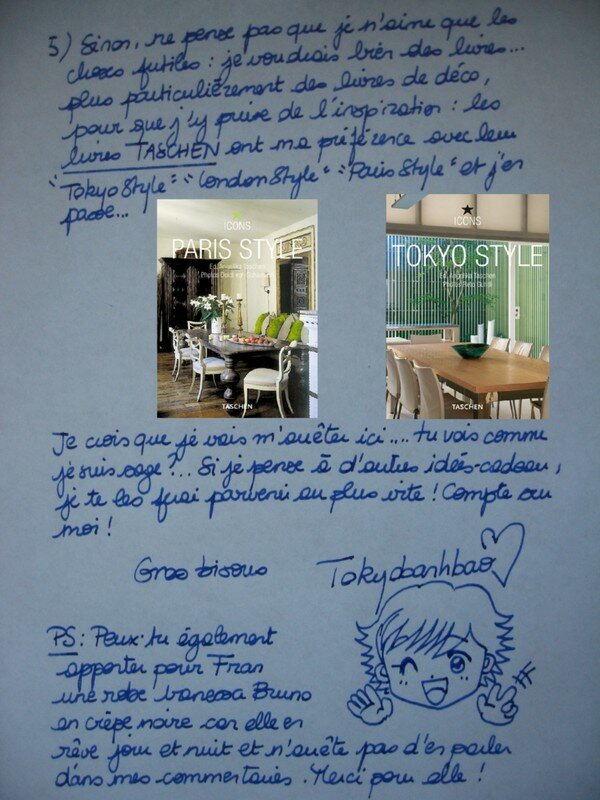 5) Sinon, ne pense pas que je n'aime que les
choses futiles : je voudrais bien des livres...
plus particulièrement des livres de déco,
pour que j'y puise de l'inspiration : les
livres TASCHEN ont ma préférence avec leur
"Tokyo Style" "London Style" "Paris Style" et j'en
passe...
ICONS
PARIS STYLE
Ed. Angelika Taschen
Photos
TASCHEN
ICONS
TOKYO STYLE
Ed. Angelika Taschen
Photos Reto Guntli
TASCHEN
Je crois que je vais m'arrêter ici .... tu vois comme
je suis sage ?.. Si je pense à d'autres idées-cadeau,
je te les ferai parvenir au plus vite ! Compte sur
moi !
Gros bisous
Tokyobanhbao
PS : Peux-tu également
apporter pour Fran
une robe Vanessa Bruno
en crêpe noire car elle en
rêve jour et nuit et n'arrête pas d'en parler
dans mes commentaires. Merci pour elle !